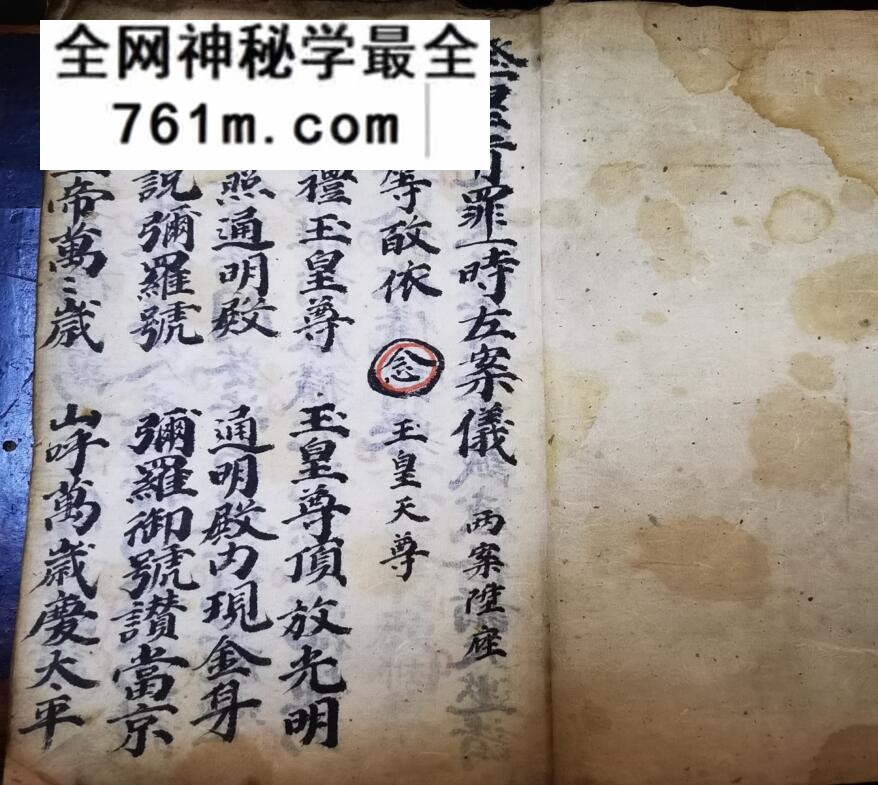 全网神秘学最全
761m.com
罪一時左案儀 两案陞座
等皈依 念 玉皇天尊
禮玉皇尊 玉皇尊頂放光明
照通明殿 通明殿内現金身
説彌羅號 彌羅御號讃當京
帝萬〻歲 山呼萬歲慶太平